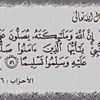 قال الله تعالى
إِنَّ اللَّهَ وَمَلَٰئِكَتَهُ يُصَلُّونَ عَلَى
النَّبِيِّ يَا أَيُّهَا الَّذِينَ آمَنُوا صَلُّوا
عَلَيْهِ وَسَلِّمُوا تَسْلِيمًا ٥٦
الأحزاب : ٥٦